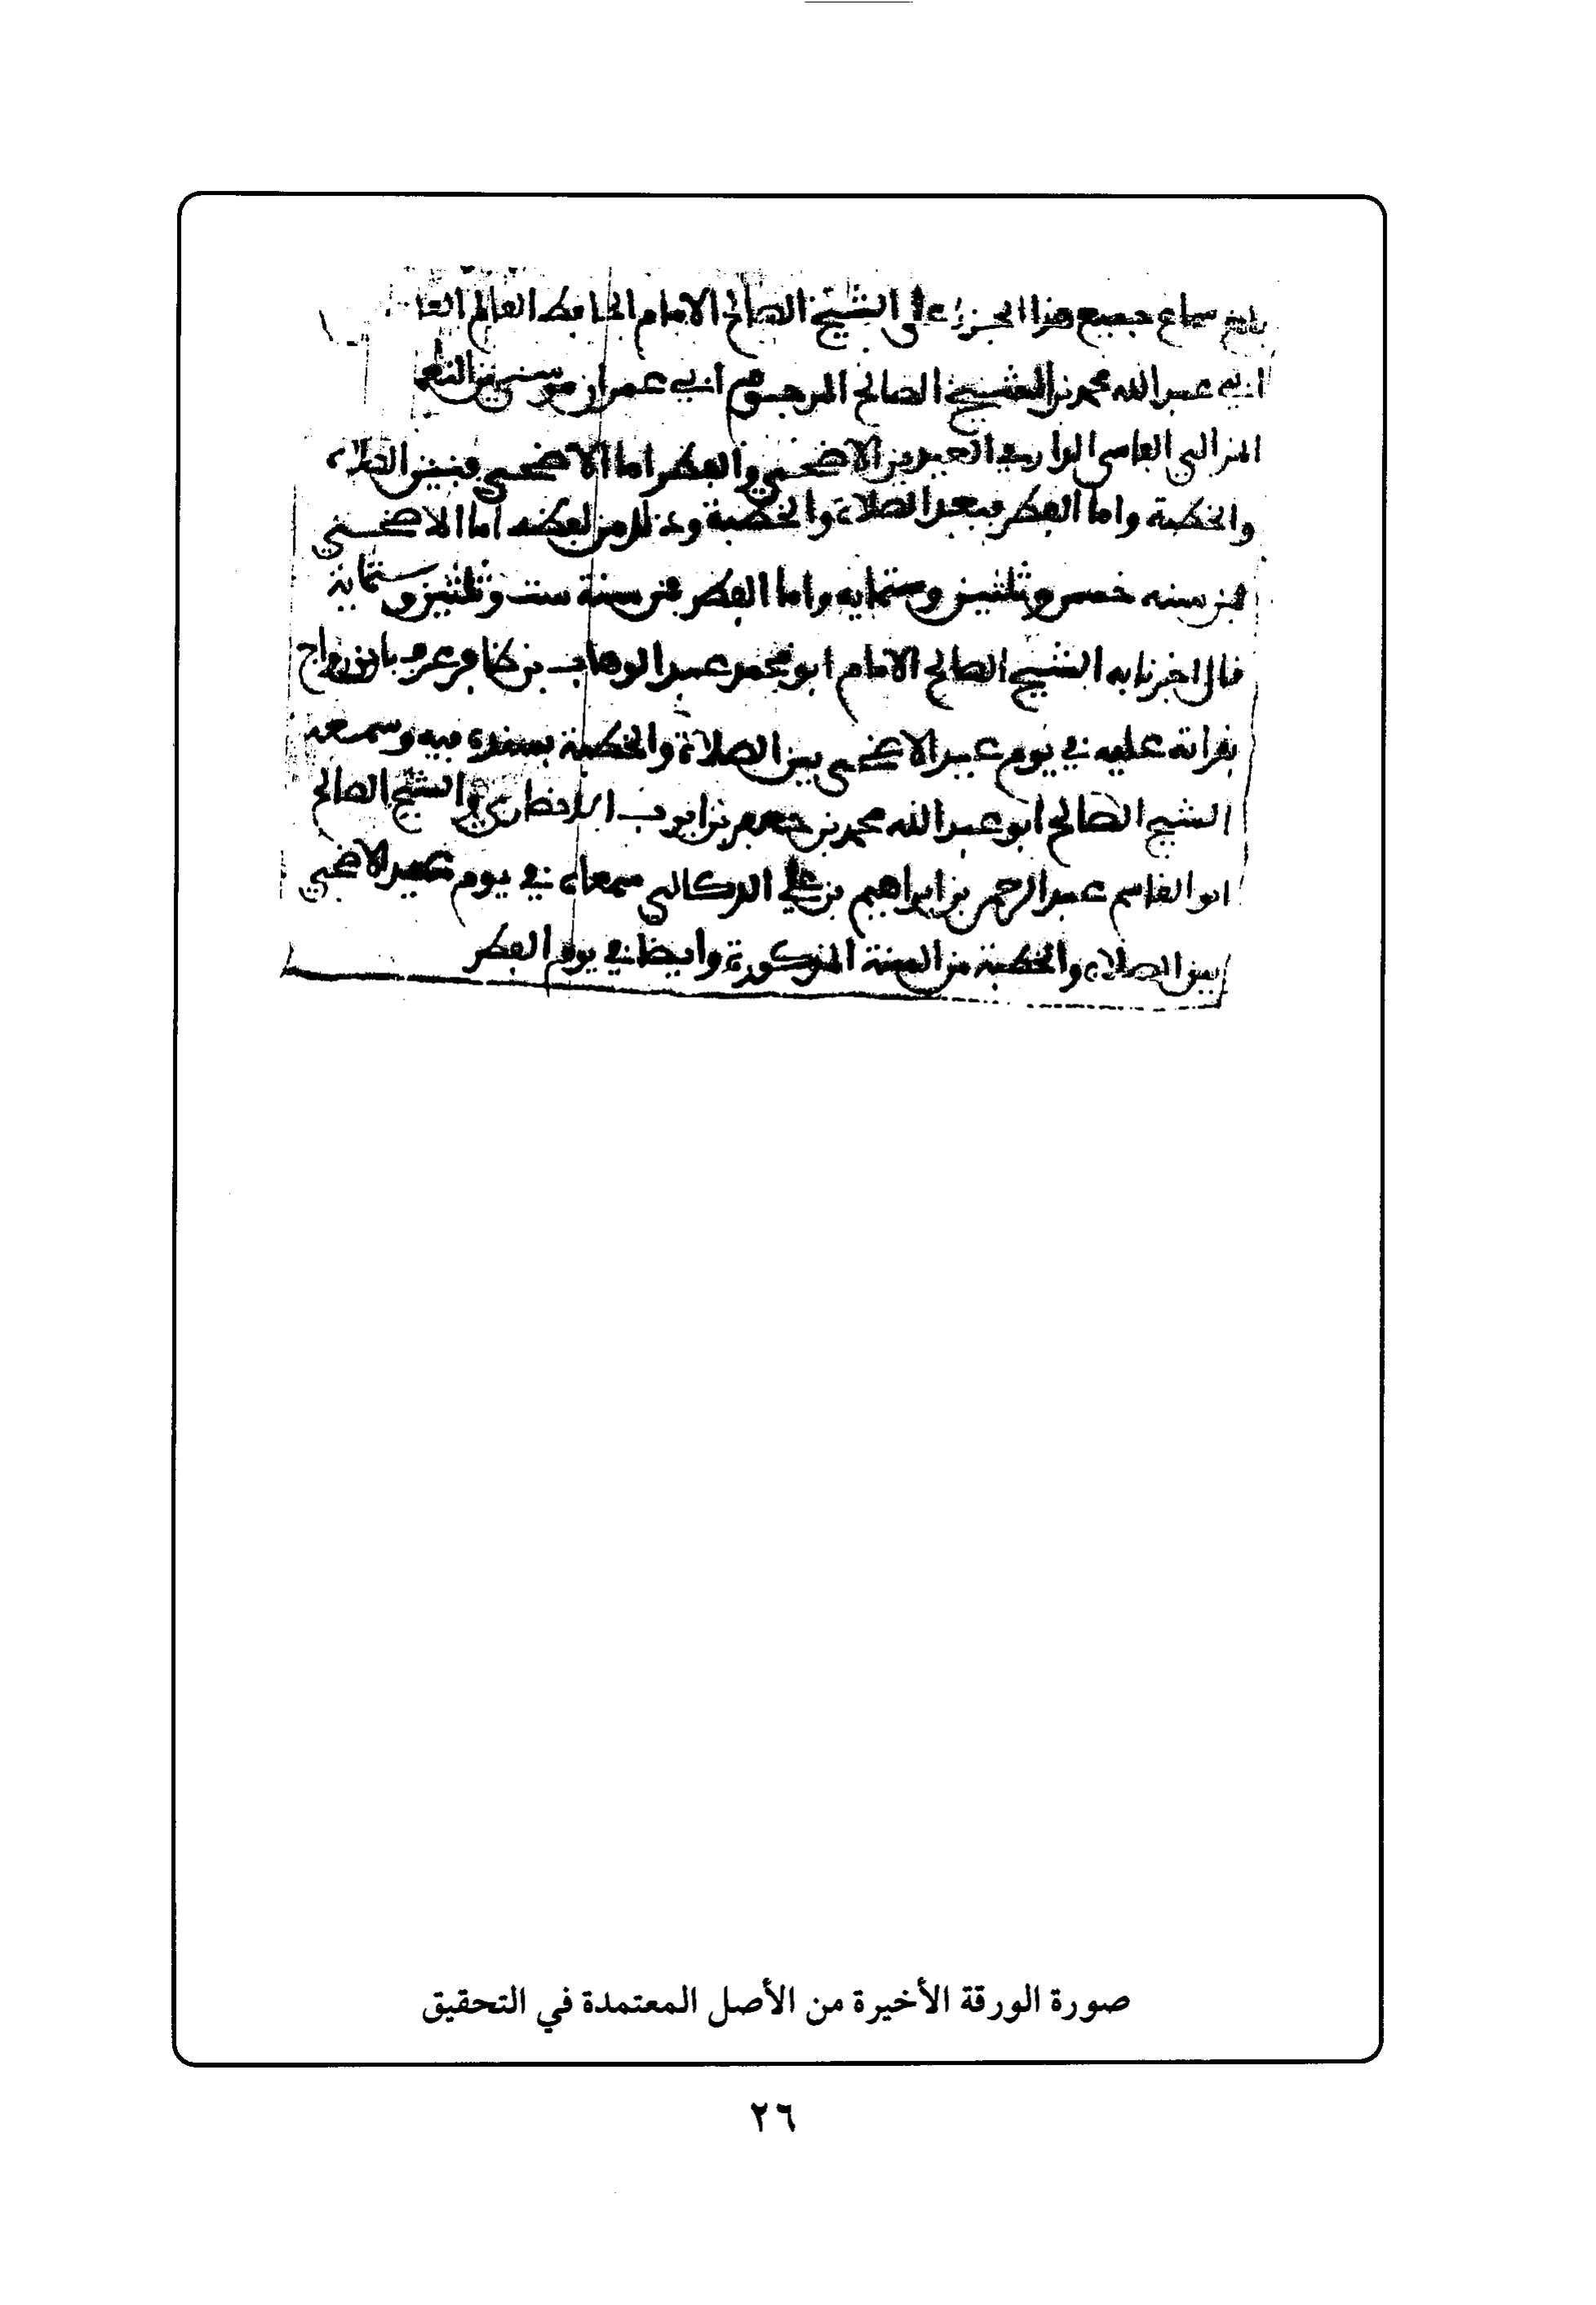 سماع جميع هذا الجزء على الشيخ الصالح الامام الحافظ العالم
ابي عبد الله محمد بن الشيخ الصالح المرحوم ابي عمران موسى بن النعمن
الفاسي الوارد في العيدين الاضحى والفطر اما الاضحى فبين الصلاة
والخطبة واما الفطر فبعد الصلاة والخطبة وذلك من لفظه اما الاضحى
فمن سنه خمس وثلثين وستمايه واما الفطر فمن سنة ست وثلثين وستماية
قال اخبرنا به الشيخ الصالح الامام ابو محمد عبد الوهاب بن ظافر عرف بابن رواج
بقراته عليه في يوم عيد الاضحى بين الصلاة والخطبة بسنده فيه وسمعه
الشيخ الصالح ابو عبد الله محمد بن جعفر بن والشيخ الصالح
ابو القاسم عبد الرحمن بن ابراهيم بن علي الدكالي سمعاه في يوم عيد الاضحى
بين الصلاة والخطبة من السنة المذكورة وايضا في يوم الفطر
صورة الورقة الأخيرة من الأصل المعتمدة في التحقيق
٢٦